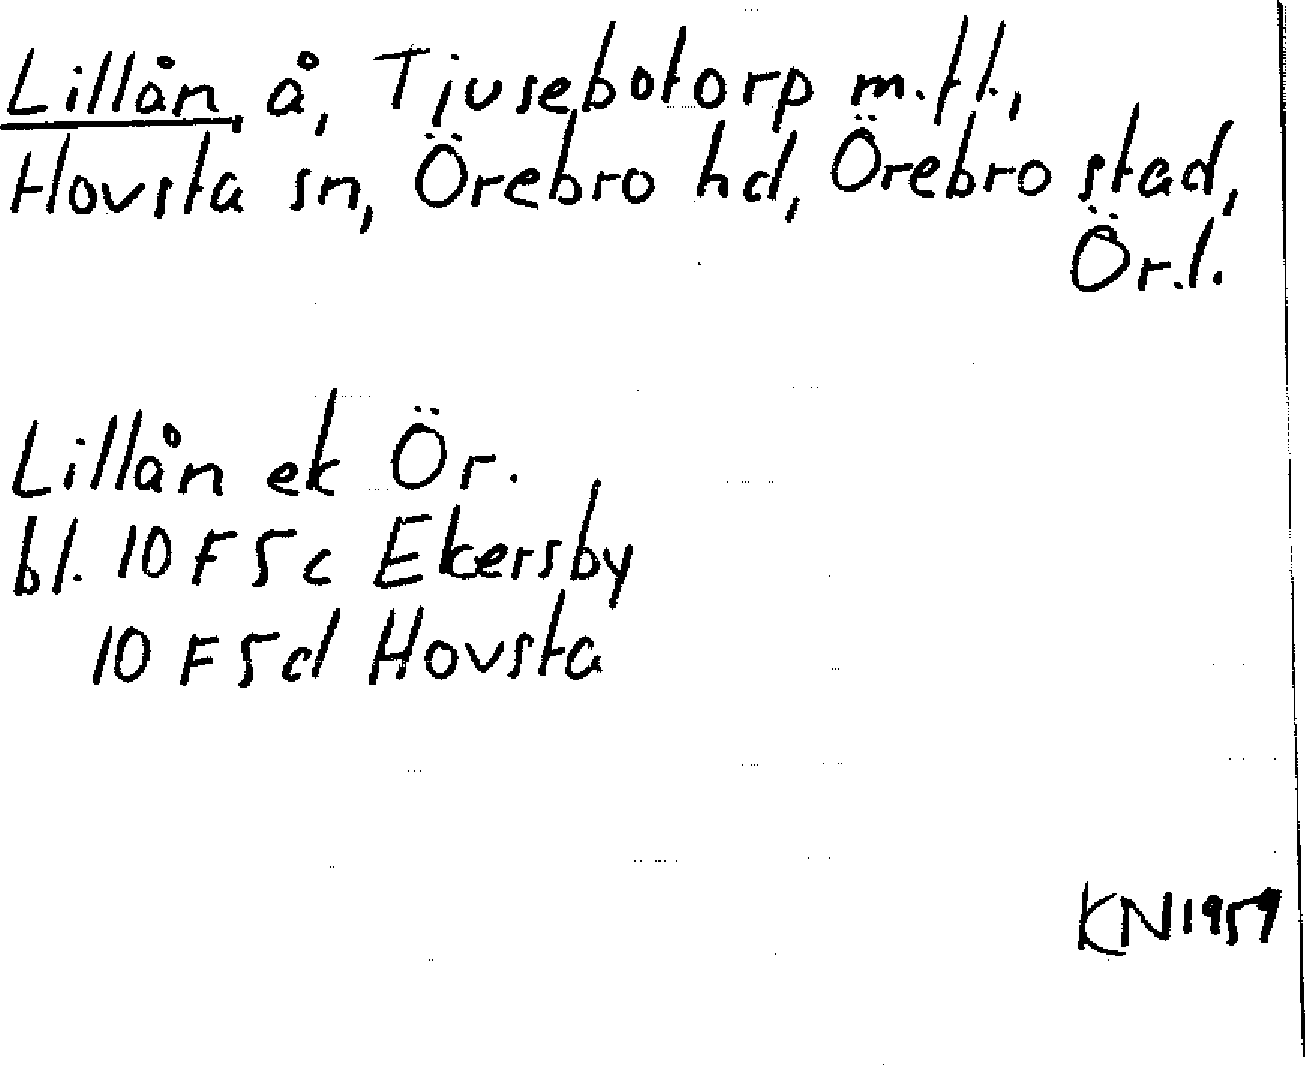 Lillån, å, Tjusebotorp m.fl.,
Hovsta sn, Örebro hd, Örebro stad,
Ör.l.
Lillån ek Ör.
bl. 10 F 5 c Ekersby
10 F 5 d Hovsta
KN 1959